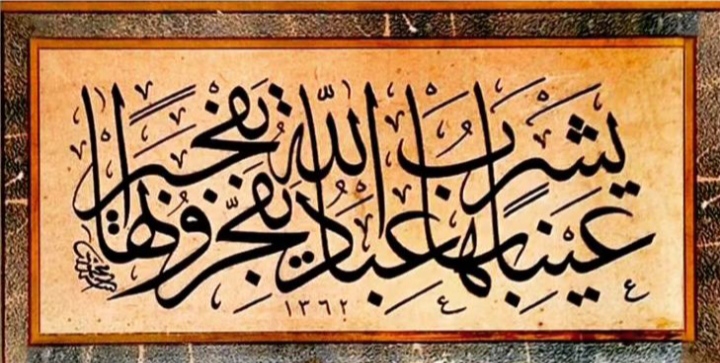 عينا يشرب بها عباد الله يفجرونها تفجيرا
١٣٦٢